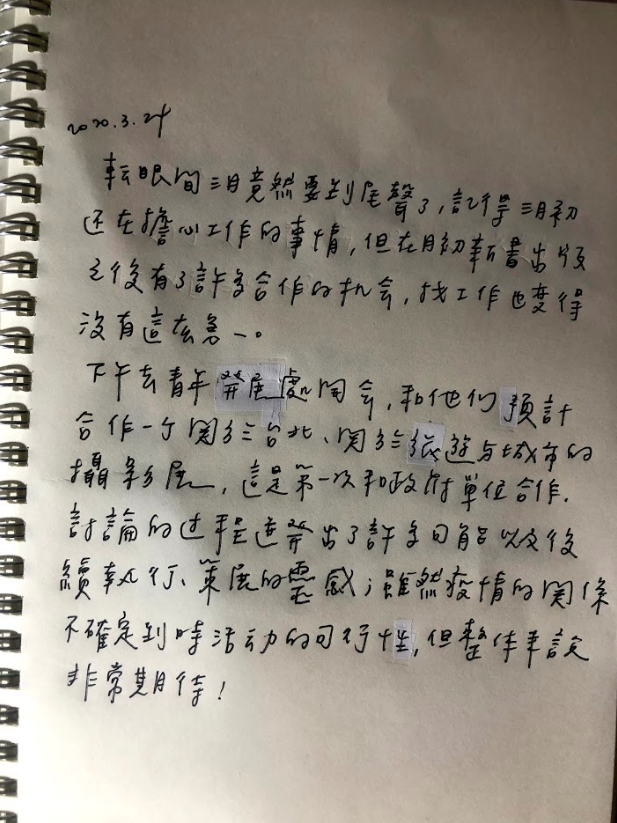 2020.3.24
転眼間三月竟然要到尾聲了,記得三月初
还在擔心工作的事情,但在月初新書出版
之後有了許多合作的机会,找工作也变得
沒有這広急一。
下午去青年発展處開会,和他们預計
合作一个関於台北、関於旅遊与城市的
攝影展,這是第一次和政府單位合作.
討論的过程迸発出了許多可能以及後
續執行、策展的靈感;雖然疫情的関係
不確定到時活动的可行性,但整体来說
非常期待!